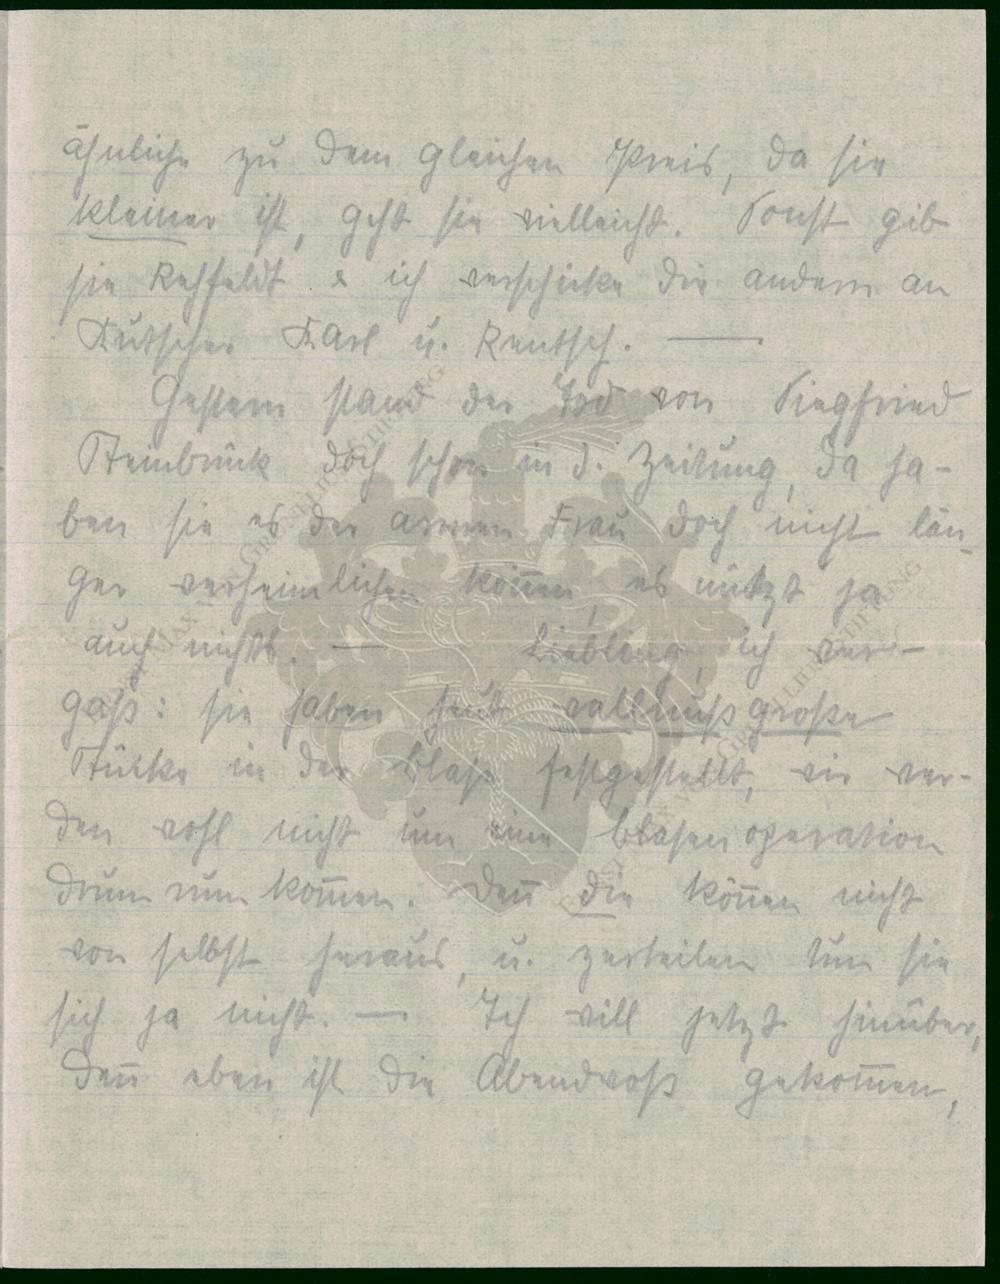 ähnliche zu dem gleichen Preis, da sie
kleiner ist, geht sie vielleicht. Sonst gib
sie Rehfeldt & ich verschicke die andern an
Kutscher Karl u. Rentsch. —
Gestern stand der Tod von Siegfried
Steinbrück doch schon in d. Zeitung, da ha-
ben sie es der armen Frau doch nicht län-
ger verheimlichen können, es nützt ja
auch nichts. — Liebling, ich ver-
gaß: sie haben heut wallnußgroße
Stücke in der Blase festgestellt, wir wer-
den wohl nicht um eine Blasenoperation
drum rum kom̅en. Den̅ die kön̅en nicht
von selbst heraus, u. zerteilen tun sie
sich ja nicht. — Ich will jetzt hinüber,
den̅ eben ist die Abendvoß gekom̅en,
MAX VON GRUNELIUS-STIFTUNG